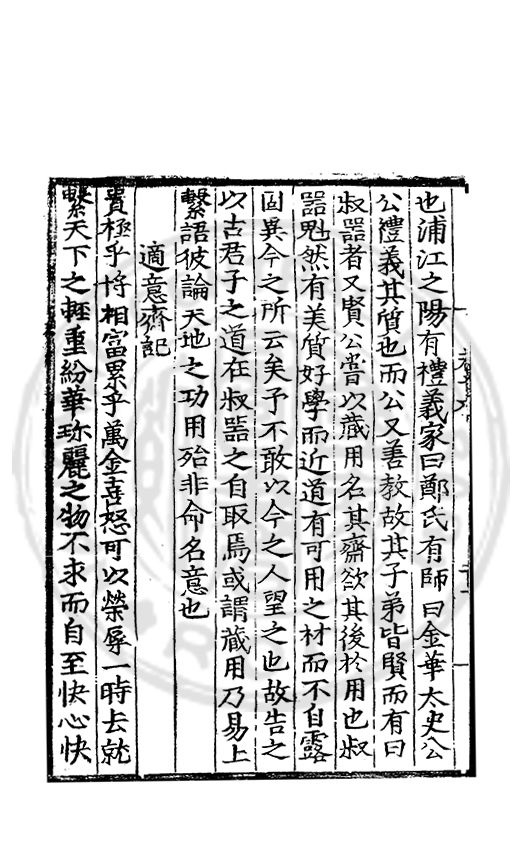 也浦江之陽有禮義家曰鄭氏有師曰金華太史公
公禮義其質也而公又善教故其子弟皆賢而有曰
叔噐者又賢公嘗以藏用名其齋欲其後於用也叔
噐魁然有美質好學而近道有可用之材而不自露
固異今之所云矣予不敢以今之人望之也故告之
以古君子之道在叔噐之自取焉或謂藏用乃易上
繫語彼論天地之功用殆非命名意也
適意齋記
貴極乎将相富累乎萬金喜怒可以榮辱一時去就
繫天下之輕重紛華珎麗之物不求而自至快心快